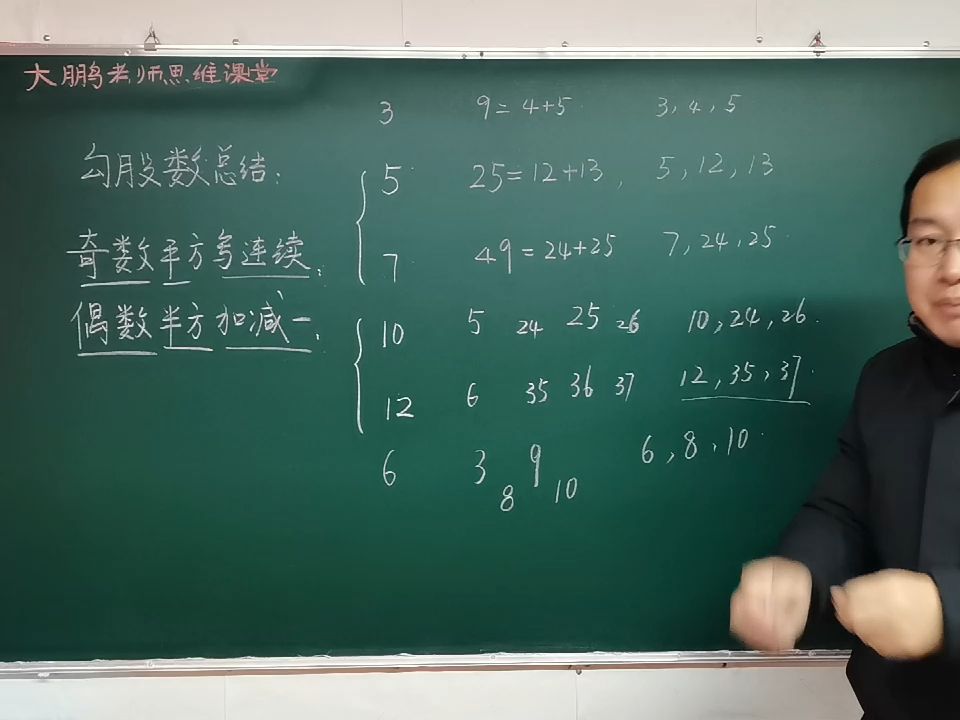 大鹏老师思维课堂
3 9=4+5 3,4,5
勾股数总结:
5 25=12+13, 5,12,13
奇数平方写连续:
7 49=24+25 7,24,25
偶数半方加减一:
10 5 24 25 26 10,24,26
12 6 35 36 37 12,35,37
6 3 8 9 10 6,8,10